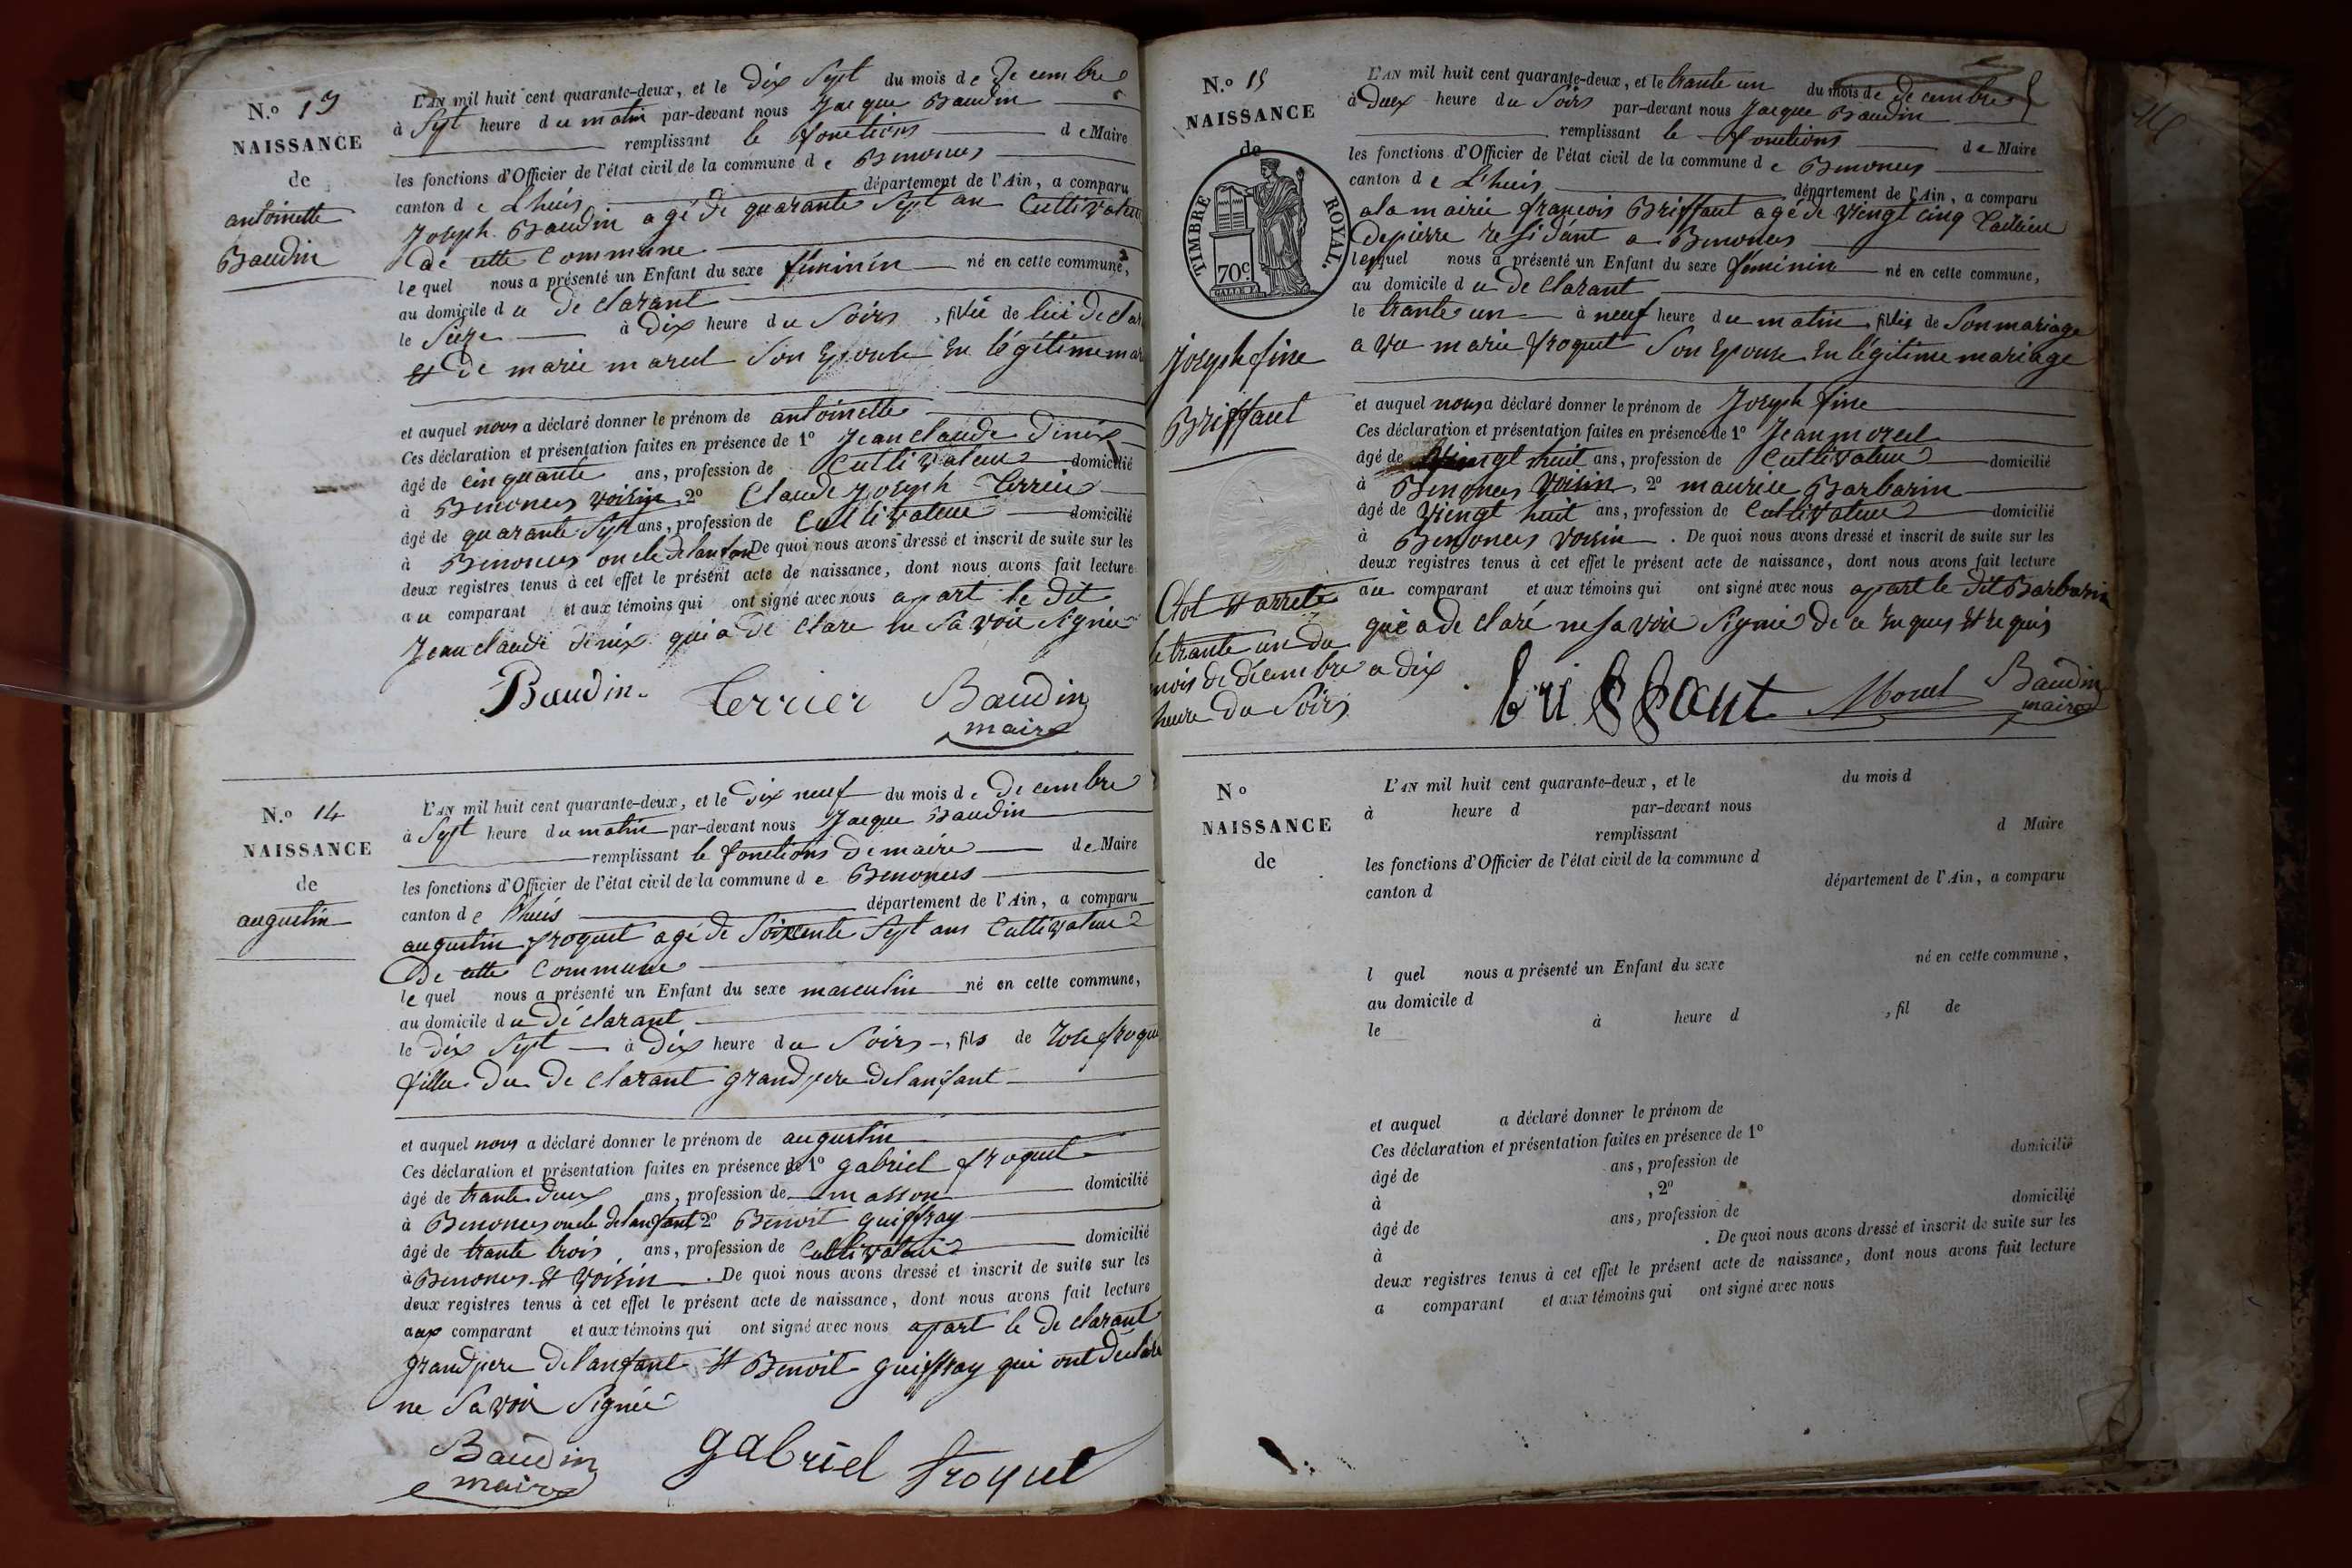 N.o 13
NAISSANCE
de
antoinette
Baudin
L'AN mil huit cent quarante-deux, et le dix Sept du mois de decembre
à Sept heure du matin par-devant nous Jacque Baudin
remplissant le fonctions de Maire
les fonctions d'Officier de l'état civil de la commune de Benonces
canton de Lhuis département de l'Ain, a comparu
Joseph Baudin agé de quarante Sept an Cultivateur
de cette Commune
lequel nous a présenté un Enfant du sexe féminin né en cette commune,
au domicile du de clarant
le Seize à dix heure du Soirs, fillie de lui de clar
et de marie marcel Son Epouse En légitime mar
et auquel nous a déclaré donner le prénom de antoinette
Ces déclaration et présentation faites en présence de 1o Jean claude
âgé de cinquante ans, profession de Cultivateur domicilié
à Benonces voisin, 2o Claude Joseph Terrier
âgé de quarante Sept ans, profession de Cultivateur domicilié
à Benonces oncle de lanfan De quoi nous avons dressé et inscrit de suite sur les
deux registres tenus à cet effet le présent acte de naissance, dont nous avons fait lecture
au comparant et aux témoins qui ont signé avec nous apart le dit
Jean claude qui a de clare ne Savoir Signié
Baudin Terrier Baudin
maire
N.o 14
NAISSANCE
de
augustin
L'AN mil huit cent quarante-deux, et le dix neuf du mois de decembre
à Sept heure du matin par-devant nous Jacque Baudin
remplissant le fonctions de maire de Maire
les fonctions d'Officier de l'état civil de la commune de Benonces
canton de Lhuis département de l'Ain, a comparu
augustin froquet agé de Soixcente Sept ans Cultivateur
de cette Commune
lequel nous a présenté un Enfant du sexe masculin né en cette commune,
au domicile du dé clarant
le dix Sept à dix heure du Soirs, fils de rose froque
fille du de clarant grand pere de lanfant
et auquel nous a déclaré donner le prénom de augustin
Ces déclaration et présentation faites en présence de 1o gabriel froquet
âgé de trante deux ans, profession de masson domicilié
à Benonces oncle de lanfant 2o Benoit guiffray
âgé de trante trois ans, profession de Cultivateur domicilié
à Benonces et voisin. De quoi nous avons dressé et inscrit de suite sur les
deux registres tenus à cet effet le présent acte de naissance, dont nous avons fait lecture
aux comparant et aux témoins qui ont signé avec nous apart le de clarant
grand pere de lanfant et Benoit guiffray qui ont déclare
ne Savoir Signié
Baudin gabriel froquet
maire
N.o 15
NAISSANCE
de
TIMBRE ROYAL.
70c
Joseph fine
Briffaut
Clot et arrete
le trante un du
mois de decembre a dix
heure du Soirs
L'AN mil huit cent quarante-deux, et le trante un du mois de decembre
à duex heure du Soirs par-devant nous Jacque Baudin
remplissant le fonctions de Maire
les fonctions d'Officier de l'état civil de la commune de Benonces
canton de Lhuis département de l'Ain, a comparu
a la mairie francois Briffaut agé de vingt cinq tailieur
de pierre residant a Benonces
lequel nous a présenté un Enfant du sexe féminin né en cette commune,
au domicile du de clarant
le trante un à neuf heure du matin, fillie de Son mariage
a ve marie froquet Son Epouse En légitime mariage
et auquel nous a déclaré donner le prénom de Joseph fine
Ces déclaration et présentation faites en présence de 1o Jean morel
âgé de vingt huit ans, profession de Cultivateur domicilié
à Benonces Voisin, 2o maurice Barbarin
âgé de Vingt huit ans, profession de Cultivateur domicilié
à Benonces Voisin. De quoi nous avons dressé et inscrit de suite sur les
deux registres tenus à cet effet le présent acte de naissance, dont nous avons fait lecture
au comparant et aux témoins qui ont signé avec nous apart le dit Barbarin
qui a de claré ne Savoir Signié de ce Enques et requis
briffaut Morel Baudin
maire
N o
NAISSANCE
de
L'AN mil huit cent quarante-deux, et le du mois d
à heure d par-devant nous
remplissant d Maire
les fonctions d'Officier de l'état civil de la commune d
canton d département de l'Ain, a comparu
l quel nous a présenté un Enfant du sexe né en cette commune,
au domicile d
le à heure d , fil de
et auquel a déclaré donner le prénom de
Ces déclaration et présentation faites en présence de 1o
âgé de ans, profession de domicilié
à , 2o
âgé de ans, profession de domicilié
à . De quoi nous avons dressé et inscrit de suite sur les
deux registres tenus à cet effet le présent acte de naissance, dont nous avons fait lecture
a comparant et aux témoins qui ont signé avec nous